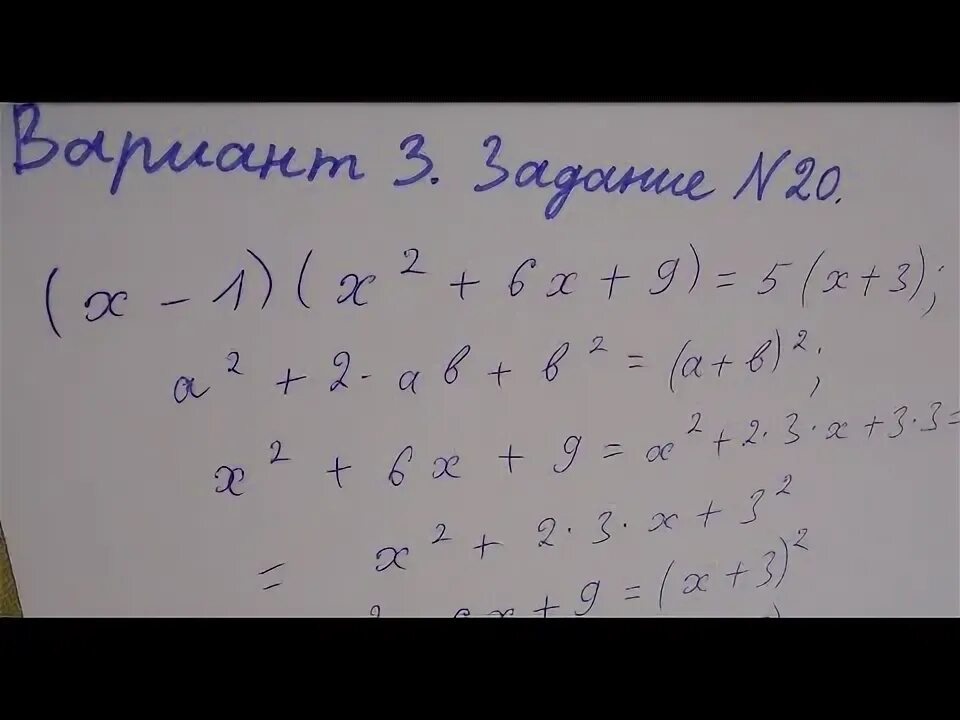 Вариант 3. Задание N20.
(x - 1)(x² + 6x + 9) = 5(x+3);
a² + 2·ab + b² = (a+b)²;
x² + 6x + 9 = x² + 2·3·x + 3·3 =
= x² + 2·3·x + 3²
x² + 6x + 9 = (x+3)²